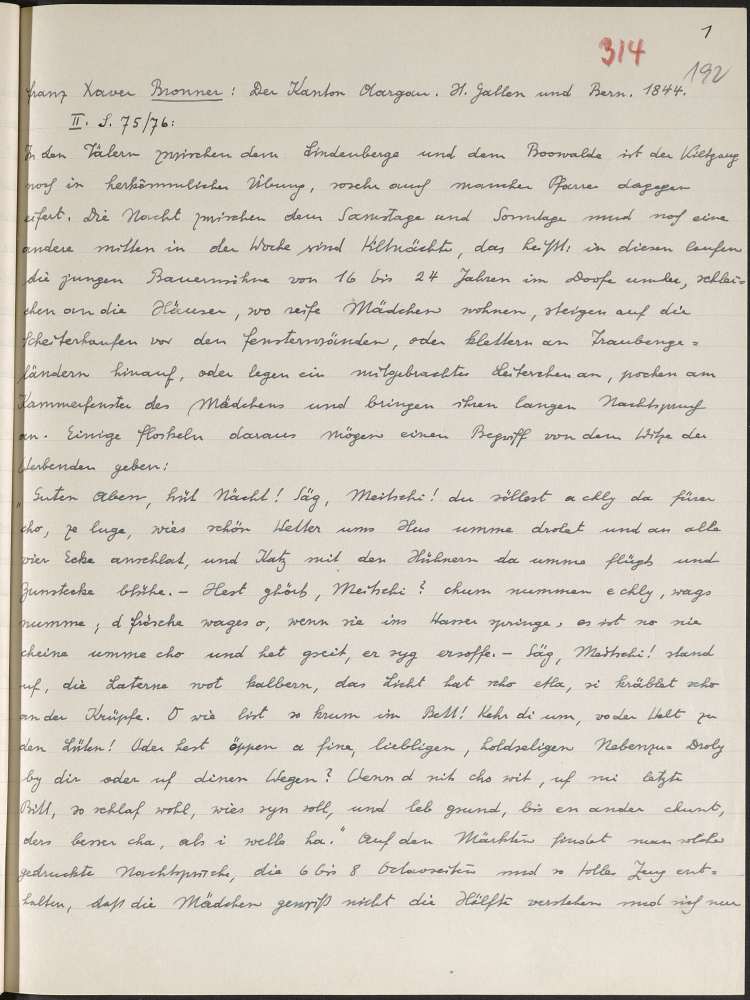 1
314
192
Franz Xaver Bronner: Der Kanton Aargau. St. Gallen und Bern. 1844.
II. S. 75/76:
In den Tälern zwischen dem Lindenberge und dem Boowalde ist der Kiltgang
noch in herkömmlicher Übung, so sehr auch mancher Pfarrer dagegen
eifert. Die Nacht zwischen dem Samstage und Sonntage und noch eine
andere mitten in der Woche sind Kiltnächte, das heißt: in diesen laufen
die jungen Bauernsöhne von 16 bis 24 Jahren im Dorfe umher, schlei-
chen an die Häuser, wo reife Mädchen wohnen, steigen auf die
Scheiterhaufen vor den Fensterwänden, oder klettern an Traubenge=
ländern hinauf, oder legen ein mitgebrachtes Leiterchen an, pochen am
Kammerfenster des Mädchens und bringen ihren langen Nachtspruch
an. Einige Floskeln daraus mögen einen Begriff von dem Witze der
Werbenden geben:
"Guten Aben, hüt Nächt! Säg, Meitschi! du söllest a chly da fürer
cho, ze luge, wies schön Wetter ums Hus umme drolet und an alle
vier Ecke anschlat, und Katz mit den Hühnern da umme flügt und
Zunstecke blühe. – Hest ghört, Meitschi? chum nummen e chly, wags
numme, d Frösche wages o, wenn sie ins Wasser springe, es ist no nie
cheine umme cho und het gseit, er syg ersoffe. – Säg, Meitschi! stand
uf, die Laterne wot kalbern, das Licht hat scho etla, si kräblet scho
an der Krüpfe. O wie list so krum im Bett! Kehr di um, vo der Welt zu
den Lüten! Oder hest öppen a fine, liebligen, holdseligen Nebenzu= Droly
by dir oder uf dinen Wegen? Wenn d nit cho wit, uf mi letzte
Bitt, so schlaf wohl, wies syn soll, und leb gsund, bis en ander chunt,
ders besser cha, als i welle ha." Auf den Märkten findet man solche
gedruckte Nachtsprüche, die 6 bis 8 Octavseiten und so tolles Zeug ent=
halten, daß die Mädchen gewiß nicht die Hälfte verstehen und sich nur